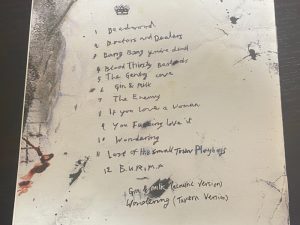 1 Deadwood
2 Doctors and Dealers
3 Bang Bang you're dead
4 Blood Thirsty Bastards
5 The Gentry cove
6 Gin & Milk
7 The Enemy
8 If you love a woman
9 You Fucking love it
10 Wondering
11 Last of the Small Town Playboys
12 B.U.R.M.A
Gin & milk (acoustic version)
Wondering (Tavern Version)